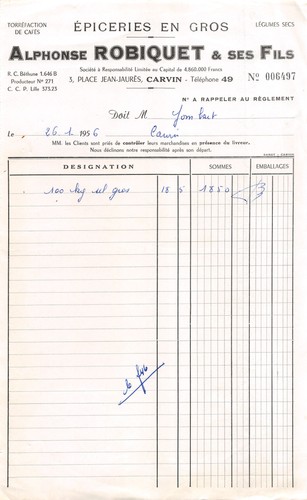 TORRÉFACTION
DE CAFÉS
ÉPICERIES EN GROS
LÉGUMES SECS
ALPHONSE ROBIQUET & SES FILS
Société à Responsabilité Limitée au Capital de 4.860.000 Francs
R. C. Béthune 1.646 B
Producteur N° 271
C. C. P. Lille 373.23
3, PLACE JEAN-JAURÈS, CARVIN - Téléphone 49
N° 006497
N° A RAPPELER AU RÈGLEMENT
Doit M.
Le, 26.1 1956
Carvin
MM. les Clients sont priés de contrôler leurs marchandises en présence du livreur.
Nous déclinons notre responsabilité après son départ.
DESIGNATION
SOMMES
EMBALLAGES
100 kg sel gros 18 5 1850